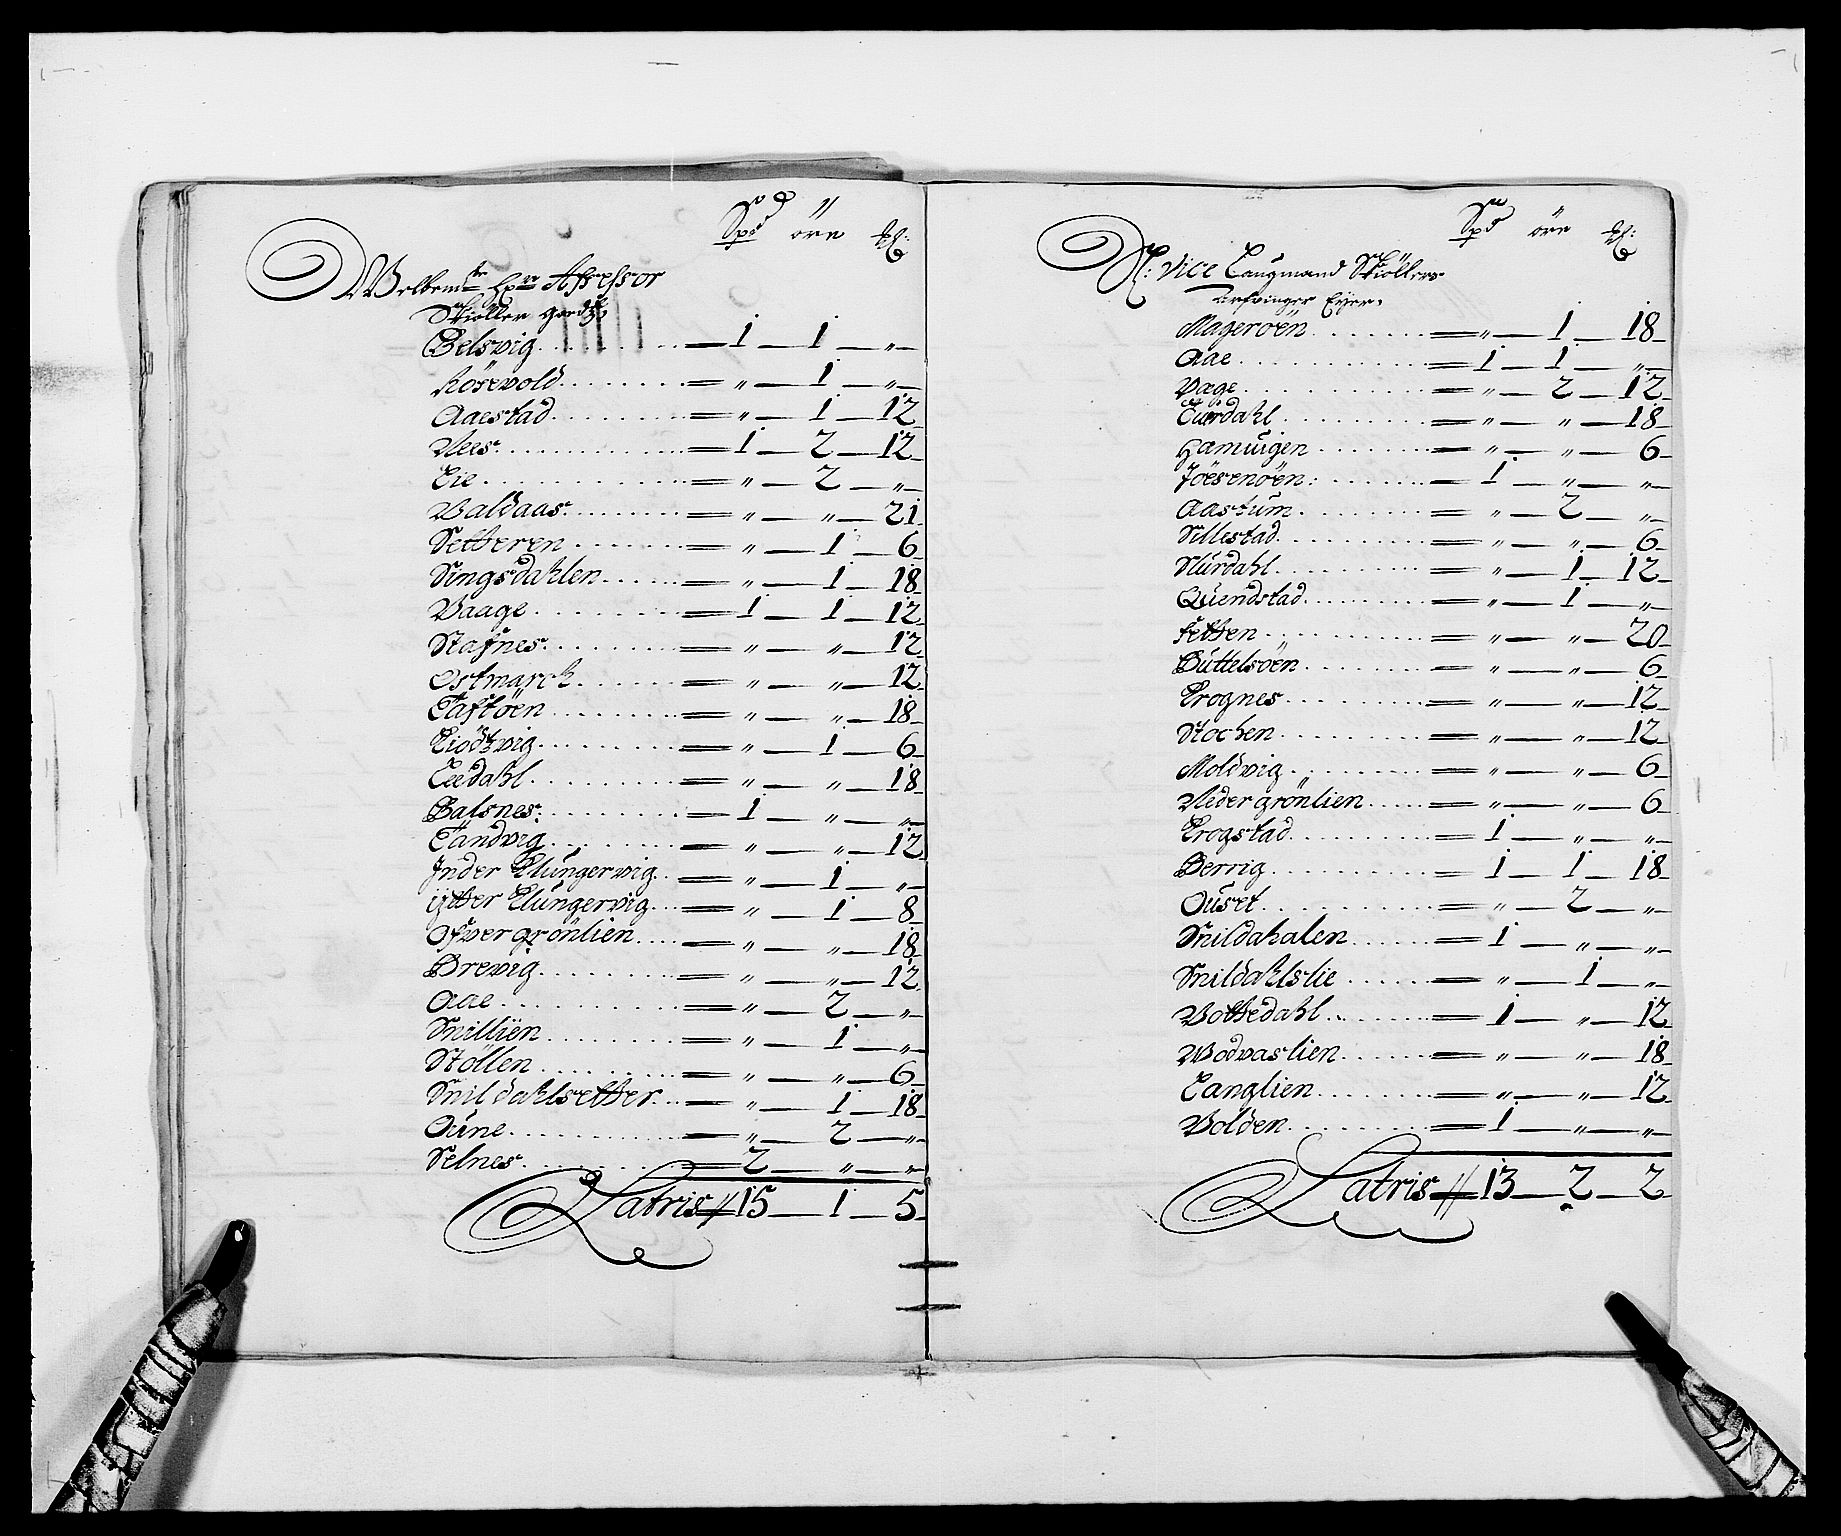 Spd öre
Welbemte Hr Assessor
Skiöller
Belsvig = 1 — 1 — "
Rösevold = " — 1 — "
Aaestad = " — 1 — 12
Nees = 1 — 2 — 12
Eie = " — 2 — "
Valdaas = " — " — 21
Setteren = " — 1 — 6
Singsdahlen = " — 1 — 18
Vaage = 1 — 1 — 12
Stafnes = " — " — 12
Ostmarch = " — " — 12
Taftöen = " — " — 18
Kiodtvig = " — 1 — 6
Leedahl = " — " — 18
Balsnes = 1 — " — "
Tandvig = " — " — 12
Inder Klungervig = " — 1 — "
ÿtter Klungervig = " — 1 — 8
Ofver grönlien = " — " — 18
Brevig = " — " — 12
Aae = " — 2 — "
Snilliën = " — 1 — "
Stöllen = " — " — 6
Snildahlsetter = " — 1 — 18
Oune = " — 2 — "
Selnes = 2 — " — "
Latris // 15 — 1 — 5
Spd öre
H: Vice Laugmand Skiöllers
Arfvinger Eÿer
Mageröen = " — 1 — 18
Aae = 1 — 1 — "
Vage = " — 2 — 12
= " — " — 18
Hamugen = " — " — 6
Jöesenöen = 1 — " — "
Aastum = " — 2 — "
Sillestad = " — " — 6
Slurdahl = " — 1 — 12
Quendstad = " — 1 — "
Fetten = " — " — 20
Buttelsöen = " — " — 6
Krognes = " — " — 12
Stochen = " — " — 12
Moldvig = " — " — 6
Neder grönlien = " — " — 6
Krogstad = 1 — " — "
Berrig = 1 — 1 — 18
Ouset = " — 2 — "
Snildahalen = 1 — " — "
Snildahlslie = " — 1 — "
Vottedahl = 1 — " — 12
Vodvaslien = " — " — 18
Langlien = " — " — 12
Volden = 1 — " — "
Latris // 13 — 2 — 2